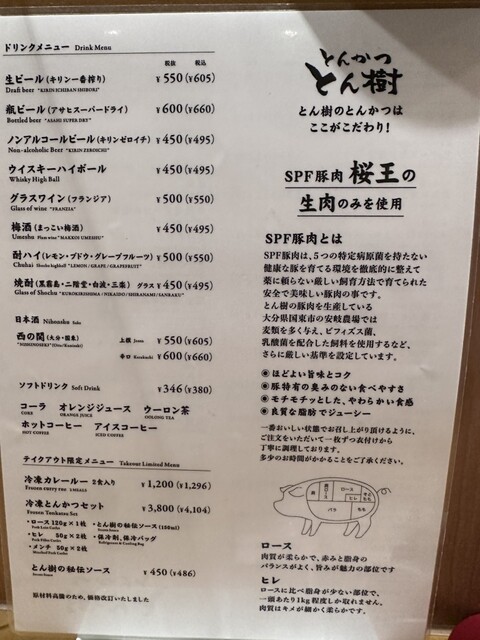 ドリンクメニュー Drink Menu
税抜 税込
生ビール(キリン一番搾り) ¥550(¥605)
Draft beer "KIRIN ICHIBAN SHIBORI"
瓶ビール(アサヒスーパードライ) ¥600(¥660)
Bottled beer "ASAHI SUPER DRY"
ノンアルコールビール(キリンゼロイチ) ¥450(¥495)
Non-alcoholic Beer "KIRIN ZEROICHI"
ウイスキーハイボール ¥450(¥495)
Whisky High Ball
グラスワイン(フランジア) ¥500(¥550)
Glass of wine "FRANZIA"
梅酒(まっこい梅酒) ¥450(¥495)
Umeshu Plum wine "MAKKOI UMESHU"
酎ハイ(レモン・ブドウ・グレープフルーツ) ¥500(¥550)
Chuhai Shochu highball "LEMON / GRAPE / GRAPEFRUIT"
焼酎(黒霧島・二階堂・白波・三楽) グラス ¥450(¥495)
Glass of Shochu "KUROKIRISHIMA / NIKAIDO / SHIRANAMI / SANRAKU"
日本酒 Nihonshu Sake
西の関(大分・国東) 上撰 Josen ¥550(¥605)
"NISHINOSEKI" (Oita/Kunisaki) 辛口 Karakuchi ¥600(¥660)
ソフトドリンク Soft Drink ¥346(¥380)
コーラ オレンジジュース ウーロン茶
COKE ORANGE JUICE OOLONG TEA
ホットコーヒー アイスコーヒー
HOT COFFEE ICED COFFEE
テイクアウト限定メニュー Takeout Limited Menu
冷凍カレールー 2食入り ¥1,200(¥1,296)
Frozen curry roux 2 MEALS
冷凍とんかつセット ¥3,800(¥4,104)
Frozen Tonkatsu Set
・ロース 120g×1枚 ・とん樹の秘伝ソース(120ml)
Pork Loin Cutlet
・ヒレ 50g×2枚 ・保冷剤、保冷バッグ
Pork Fillet Cutlet Refrigerant & Cooling Bag
・メンチ 50g×2枚
とん樹の秘伝ソース ¥450(¥486)
原材料高騰のため、価格改訂いたしました
とんかつ
とん樹
とん樹のとんかつは
ここがこだわり!
SPF豚肉 桜王の
生肉のみを使用
SPF豚肉とは
SPF豚肉は、5つの特定病原菌を持たない
健康な豚を育てる環境を徹底的に整えて
薬に頼らない厳しい飼育方法で育てられた
安全で美味しい豚肉の事です。
とん樹の豚肉を生産している
大分県国東市の安岐農場では
麦類を多く与え、ビフィズス菌、
乳酸菌を配合した飼料を使用するなど、
さらに厳しい基準を設定しています。
◉ほどよい旨味とコク
◉豚特有の臭みのない食べやすさ
◉モチモチッとした、やわらかい食感
◉良質な脂肪でジューシー
一番おいしい状態でお召し上がり頂けるように、
ご注文をいただいて一枚ずつ衣付けから
丁寧に調理しております。
多少のお時間がかかることをご了承ください。
肩 ロース
ヒレ
もも
バラ
ロース
肉質が柔らかで、赤みと脂身の
バランスがよく、旨みが魅力の部位です
ヒレ
ロースに比べ脂身が少ない部位で、
一頭あたり1kg程度しか取れません。
肉質はキメが細かく柔らかです。